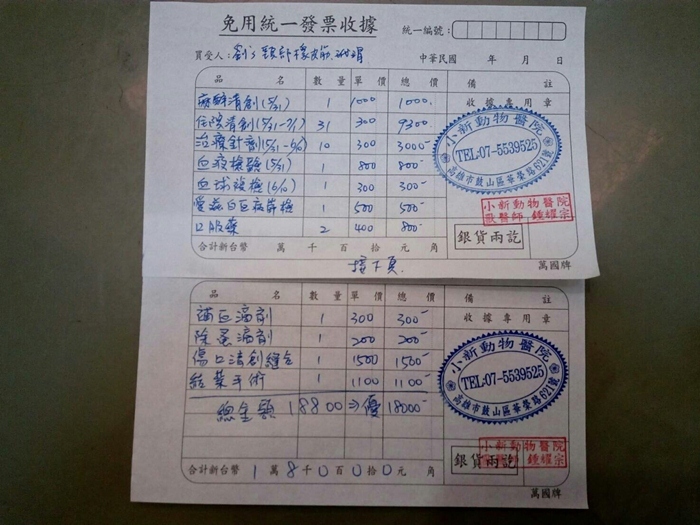 免用統一發票收據
統一編號：
買受人：
中華民國 年 月 日
品 名 數 量 單 價 總 價 備 註
麻醉清創(5/31) 1 1000 1000
收據專用章
住院清創(5/31-7/1) 31 300 9300
治療針劑(5/31-6/10) 10 300 3000
血液檢驗(5/31) 1 800 800
血球複檢(6/10) 1 300 300
愛滋白血病篩檢 1 500 500
口服藥 2 400 800
小新動物醫院
TEL:07-5539525
高雄市鼓山區華榮路621號
小新動物醫院
獸醫師 鍾耀宗
銀貨兩訖
合計新台幣 萬 千 百 拾 元 角
萬國牌
接下頁
品 名 數 量 單 價 總 價 備 註
補血滴劑 1 300 300
收據專用章
除蚤滴劑 1 200 200
傷口清創縫合 1 1500 1500
結紮手術 1 1100 1100
總金額 18800⇒優 18000
小新動物醫院
TEL:07-5539525
高雄市鼓山區華榮路621號
小新動物醫院
鍾耀宗
銀貨兩訖
合計新台幣 1 萬 8 千 0 百 0 拾 0 元 角
萬國牌